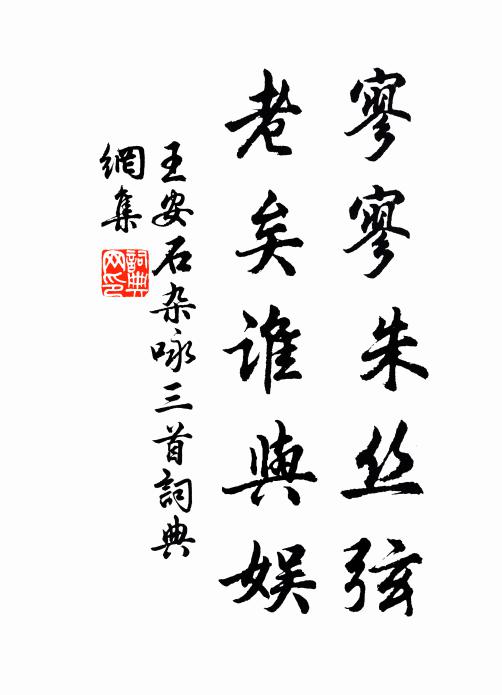 寥寥朱丝弦
老矣谁與娱
王安石杂咏三首詞典
網集
詞典网印